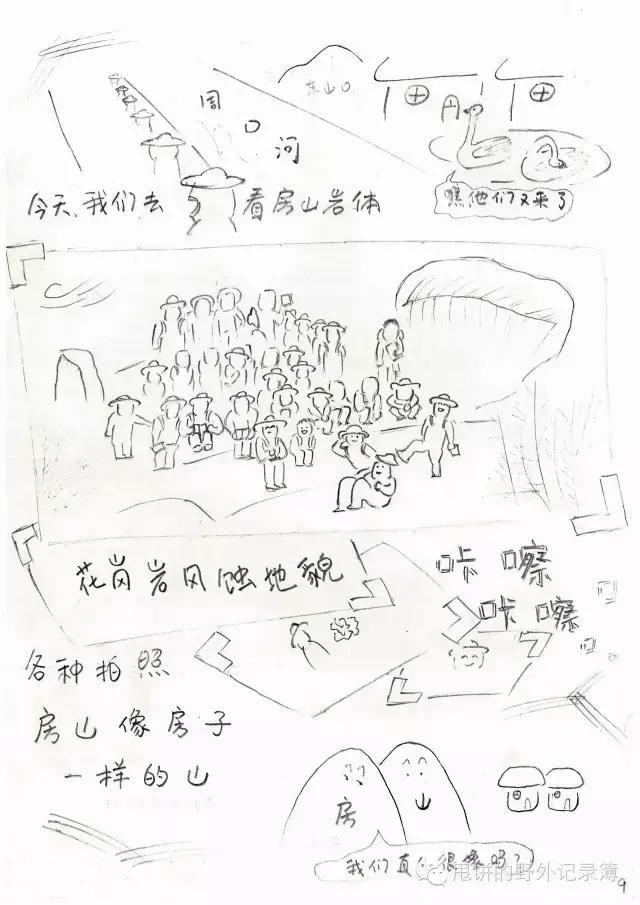 周口河
东山口
今天,我们去看房山岩体
瞧他们又来了
花岗岩风蚀地貌
咔嚓
咔嚓
各种拍照
房山像房子
一样的山
房
我们真的很像吗?
甩饼的野外记录簿
9